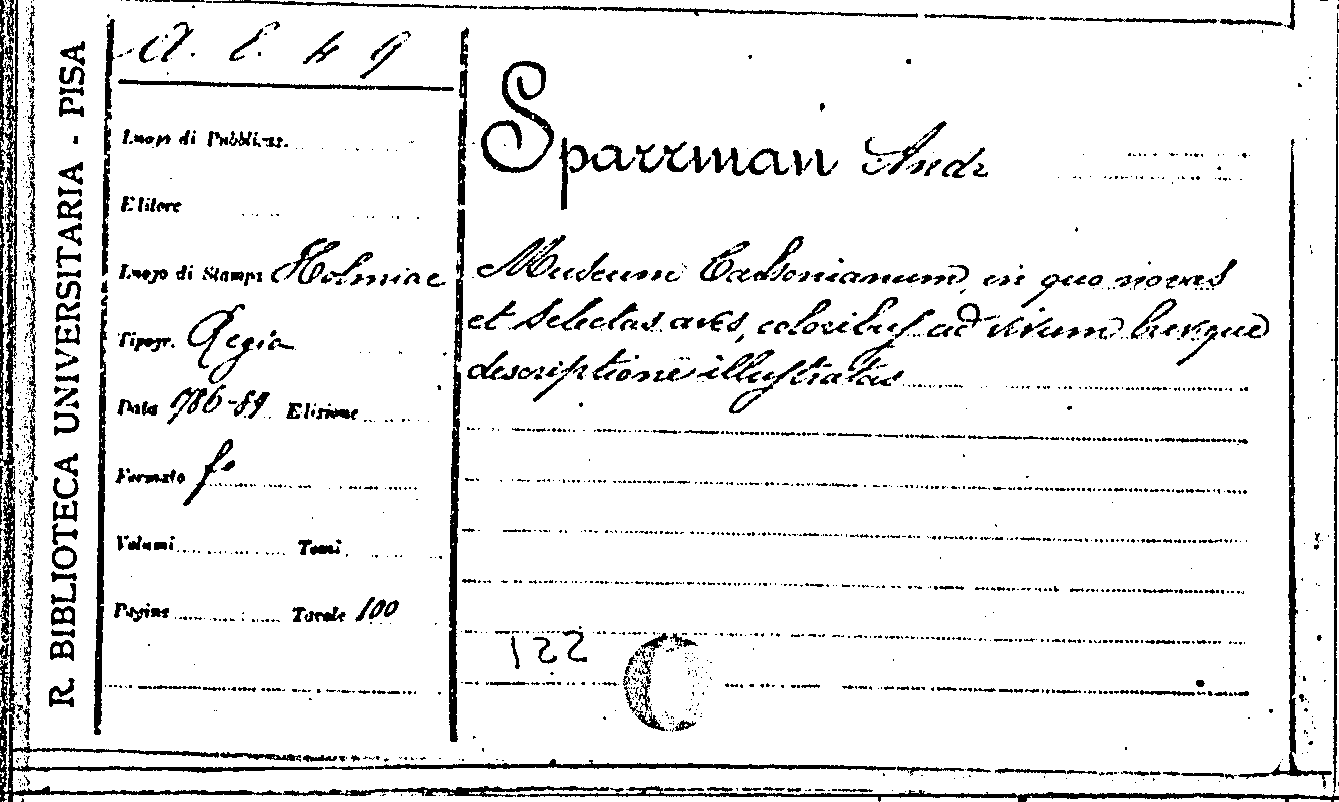 R. BIBLIOTECA UNIVERSITARIA - PISA
A. E. 4 9
Luogo di Pubblicaz.
Editore
Luogo di Stampa Holmiae
Tipogr. Regia
Data 786-89 Edizione
Formato fo
Volumi Tomi
Pagine Tavole 100
Sparrman Andr
Museum Carlsonianum, in quo novas
et selectas aves, coloribus ad vivum brevque
descriptione illustratas
122